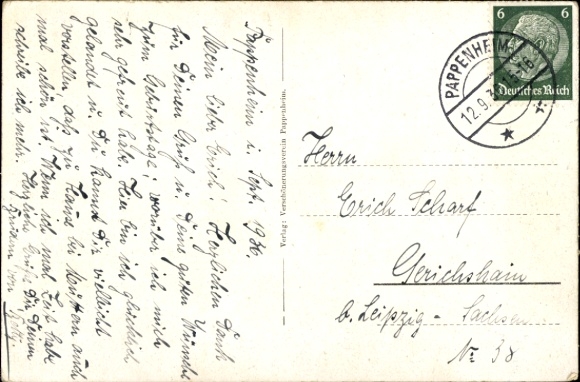 Pappenheim i. Sept. 1936.
Mein lieber Erich! Herzlichen Dank
für Deinen Gruß u. Deine guten Wünsche
zum Geburtstage, worüber ich mich
sehr gefreut habe. Hier bin ich glücklich
gelandet u. Du kannst Dir vielleicht
vorstellen daß zu Hause bei Muttern auch
mal schön ist. Wenn ich mal Zeit habe
schreibe ich mehr. Herzliche Grüße Dir Deinen
Lieben von
Verlag: Verschönerungsverein Pappenheim.
6 6
Deutsches Reich
PAPPENHEIM
12.9.36
Herrn
Erich Scharf
Gerichshain
b. Leipzig - Sachsen
Nr 38